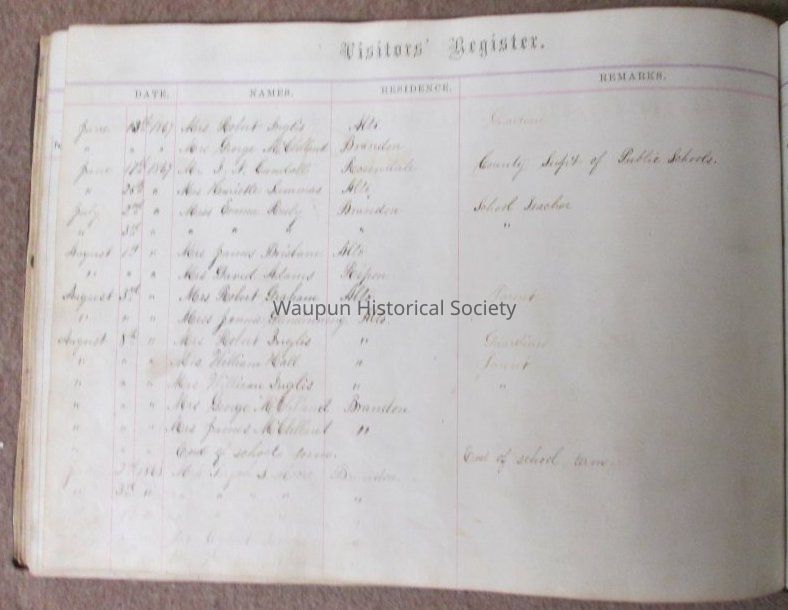 Visitors' Register.
DATE. NAMES. RESIDENCE. REMARKS.
June 13th 1867 Mrs Robert Inglis Alto Guardian
" " " Mrs George McClelland Brandon
June 17th 1867 Mr I. N. Cundall Rosendale County Supt of Public Schools.
" 26th " Mrs Henriette Alto
July 2nd " Miss Emma Brandon School Teacher
" 3rd " " " " " "
August 1st " Mrs James Brisbane Alto
" " " Mrs David Adams Ripon
August 3rd " Mrs Robert Graham Alto Parent
Waupun Historical Society
" " " Miss Alto.
August 8th " Mrs Robert Inglis " Guardian
" " " Mrs William Hall " Parent
" " " Mrs William Inglis " "
" " " Mrs George McClelland Brandon
" " " Mrs James McClelland "
" " " End of school term. End of school term.
1868 Brandon
" 3rd " " " " "